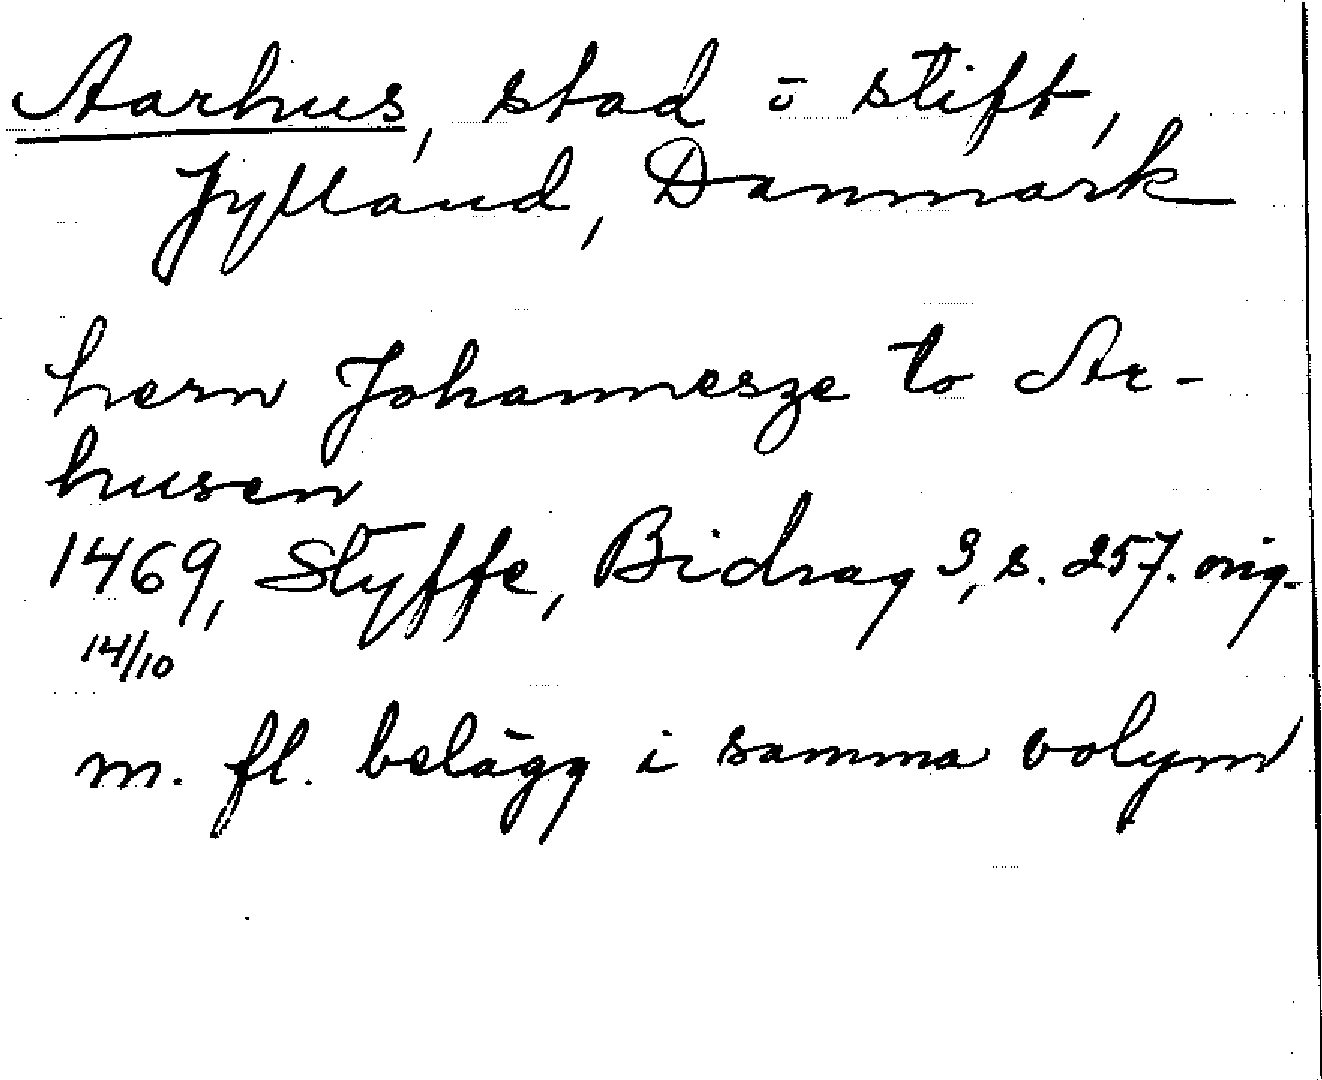 Aarhus, stad o stift,
Jylland, Danmark
hern Johannesze to Ar-
husen
1469, Styffe, Bidrag 3, s. 257. orig.
14/10
m. fl. belägg i samma volym